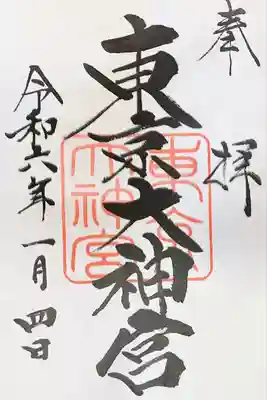 奉拝
東京大神宮
令和六年一月四日
東京大神宮